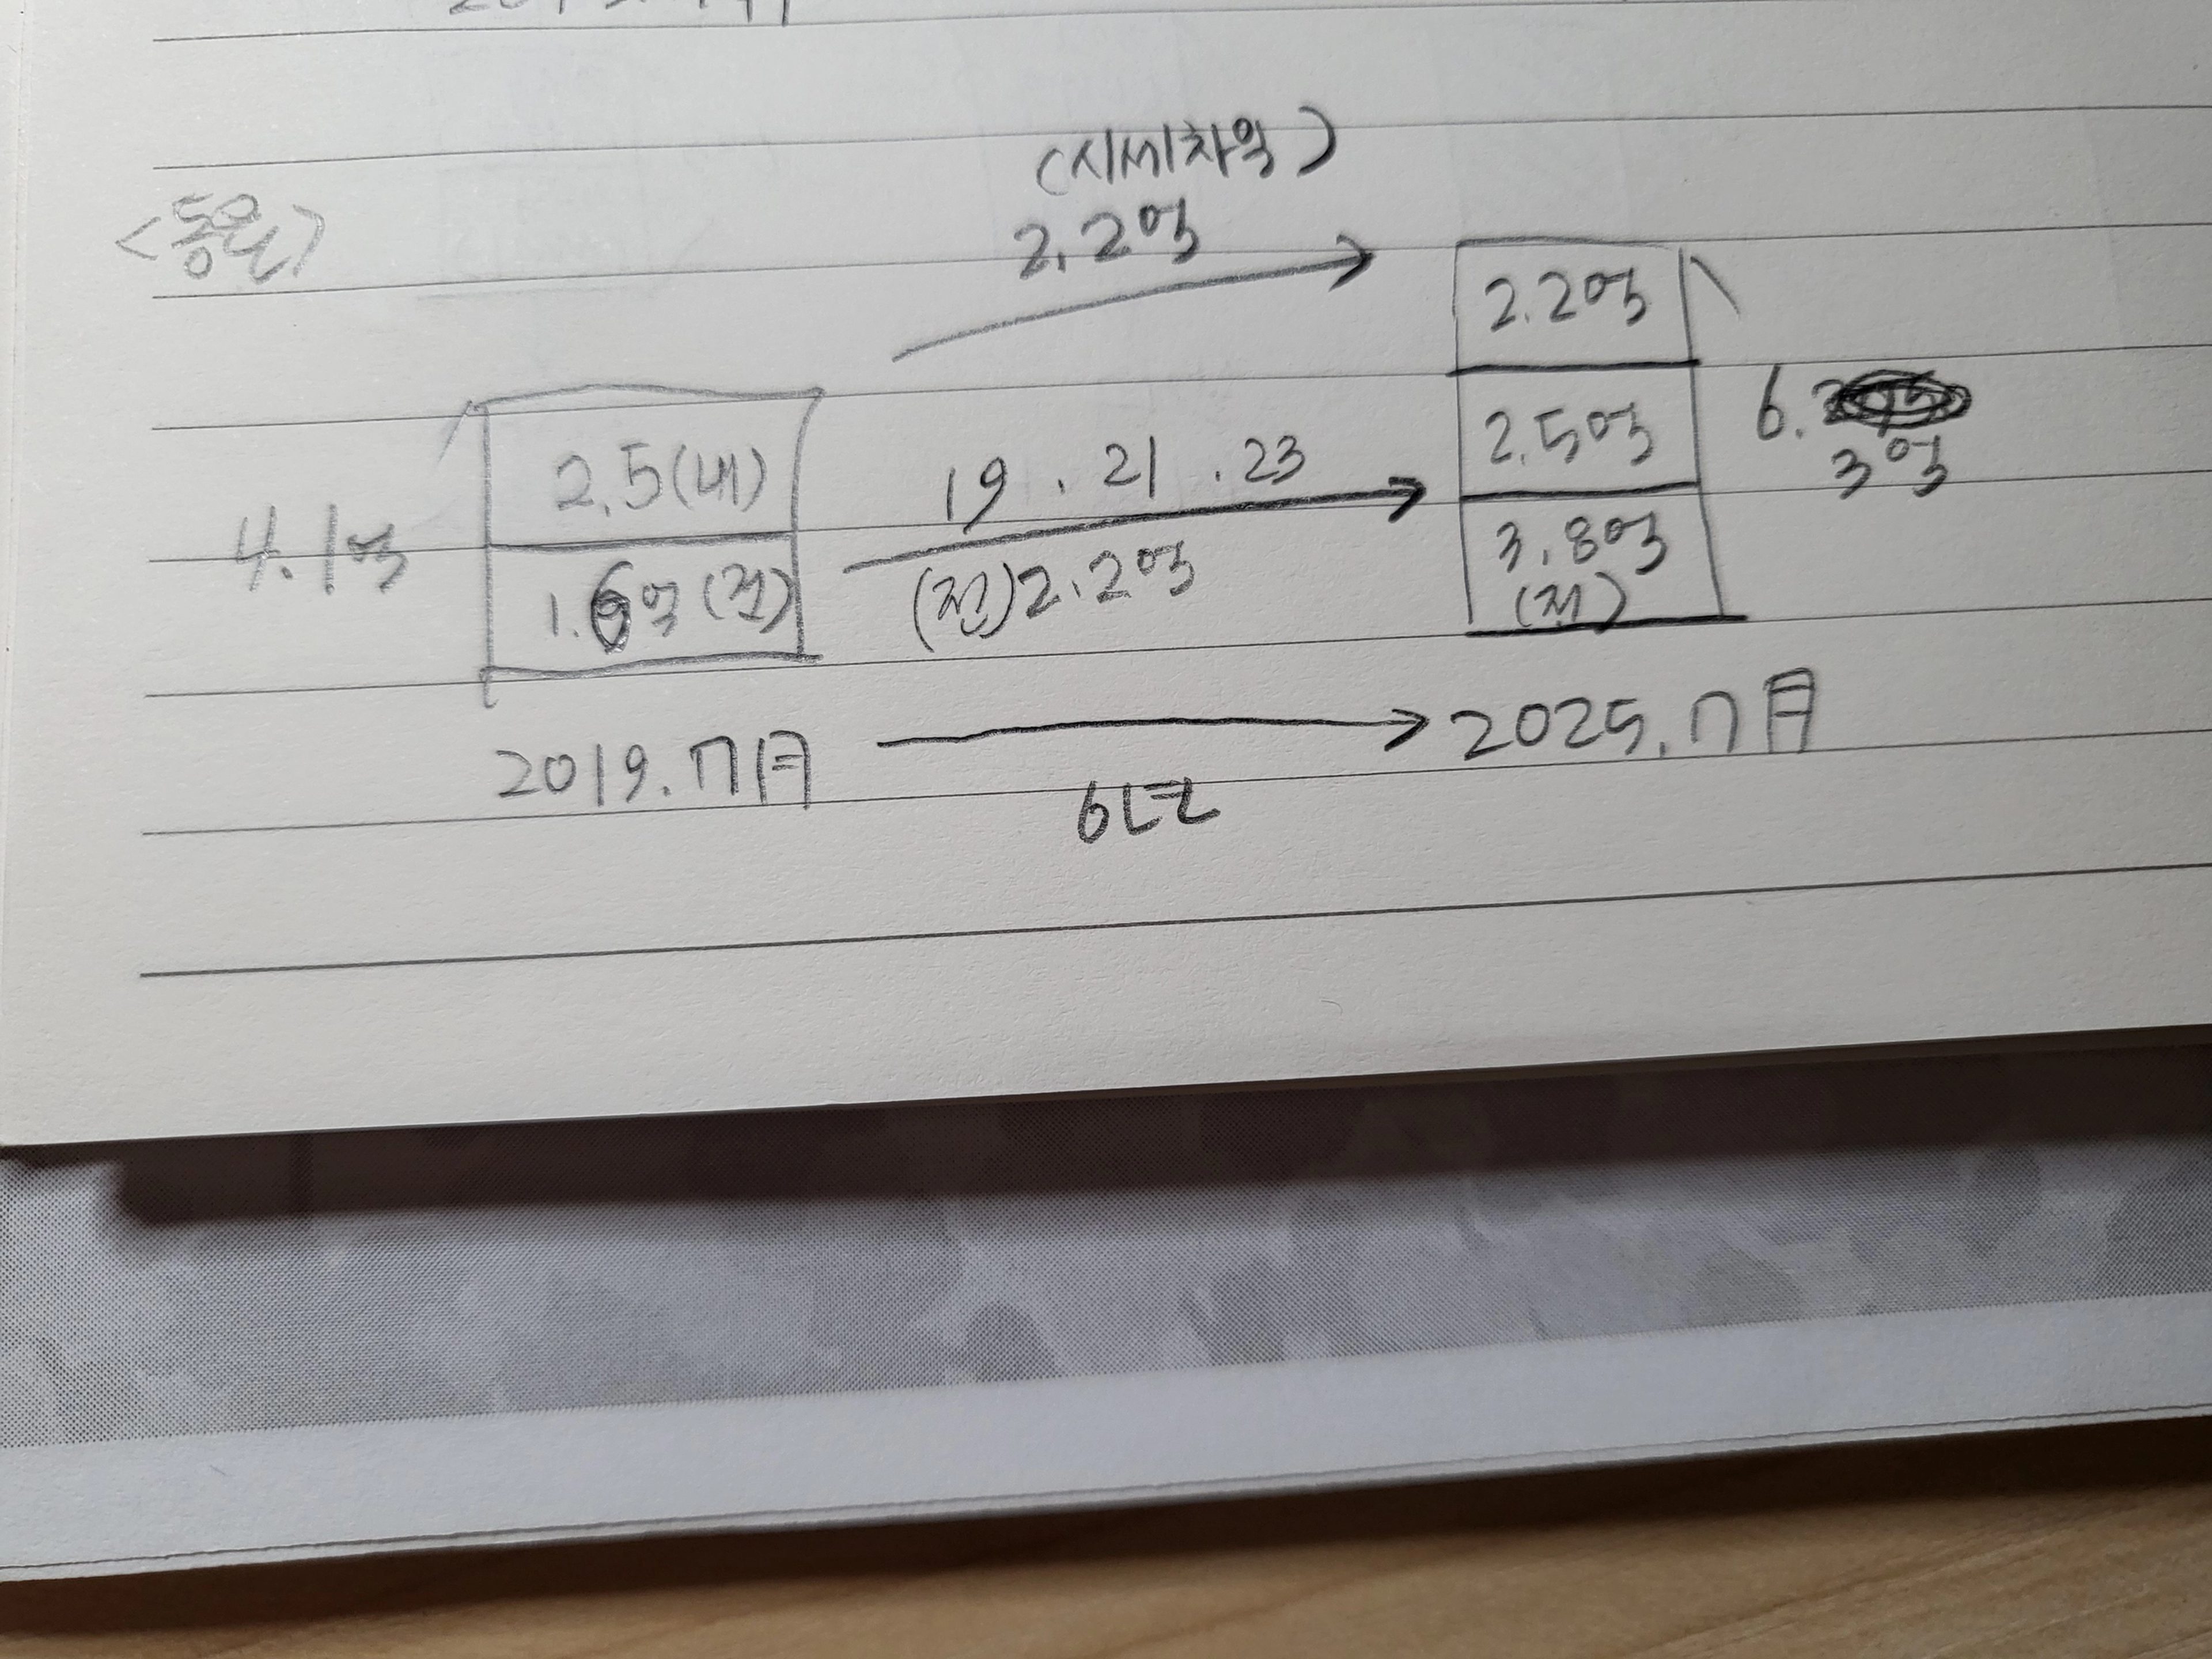 (시세차익)
<동탄>
2.2억
2.2억
2.5(내)
19 . 21 . 23
2.5억
6.
3억
4.1억
1.6억(전)
(전)2.2억
3.8억
(전)
2019.7月
2025.7月
6년